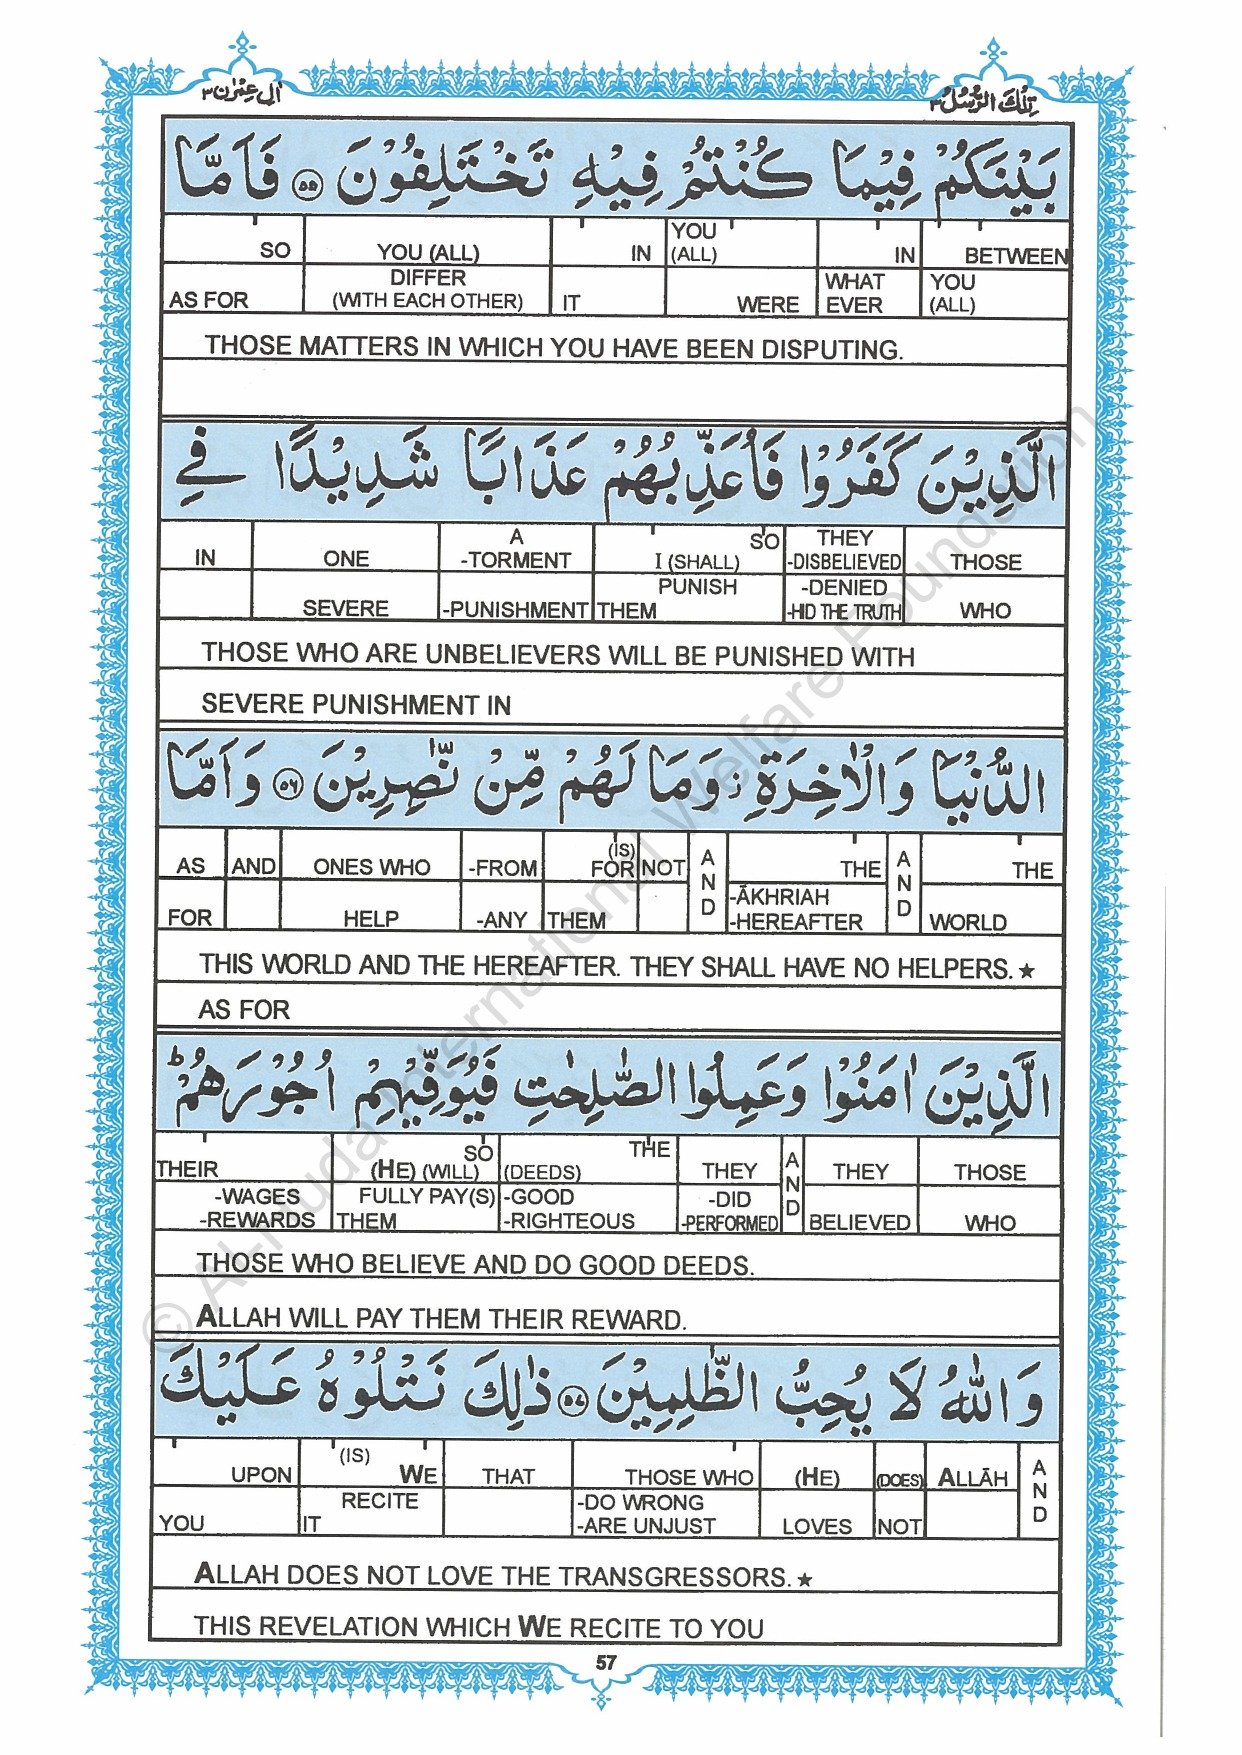 اٰلِ عِمْرٰن ٣
تِلْكَ الرُّسُلُ ٣
بَيْنَكُمْ فِيْمَا كُنْتُمْ فِيْهِ تَخْتَلِفُوْنَ ۝٥٥ فَاَمَّا
SO YOU (ALL) IN YOU (ALL) IN BETWEEN
AS FOR DIFFER (WITH EACH OTHER) IT WERE WHAT EVER YOU (ALL)
THOSE MATTERS IN WHICH YOU HAVE BEEN DISPUTING.
الَّذِيْنَ كَفَرُوْا فَاُعَذِّبُهُمْ عَذَابًا شَدِيْدًا فِي
IN ONE A -TORMENT SO I (SHALL) THEY -DISBELIEVED THOSE
SEVERE -PUNISHMENT PUNISH THEM -DENIED -HID THE TRUTH WHO
THOSE WHO ARE UNBELIEVERS WILL BE PUNISHED WITH
SEVERE PUNISHMENT IN
الدُّنْيَا وَالْاٰخِرَةِ ز وَمَا لَهُمْ مِّنْ نّٰصِرِيْنَ ۝٥٦ وَاَمَّا
AS AND ONES WHO -FROM (IS) FOR NOT AND THE AND THE
FOR HELP -ANY THEM -ĀKHRIAH -HEREAFTER WORLD
THIS WORLD AND THE HEREAFTER. THEY SHALL HAVE NO HELPERS.★
AS FOR
الَّذِيْنَ اٰمَنُوْا وَعَمِلُوا الصّٰلِحٰتِ فَيُوَفِّيْهِمْ اُجُوْرَهُمْ ط
THEIR SO (HE) (WILL) THE (DEEDS) THEY AND THEY THOSE
-WAGES -REWARDS FULLY PAY(S) THEM -GOOD -RIGHTEOUS -DID -PERFORMED BELIEVED WHO
THOSE WHO BELIEVE AND DO GOOD DEEDS.
ALLAH WILL PAY THEM THEIR REWARD.
وَاللّٰهُ لَا يُحِبُّ الظّٰلِمِيْنَ ۝٥٧ ذٰلِكَ نَتْلُوْهُ عَلَيْكَ
UPON (IS) WE THAT THOSE WHO (HE) (DOES) ALLĀH AND
YOU RECITE IT -DO WRONG -ARE UNJUST LOVES NOT
ALLAH DOES NOT LOVE THE TRANSGRESSORS.★
THIS REVELATION WHICH WE RECITE TO YOU
57
© Al-Huda International Welfare Foundation